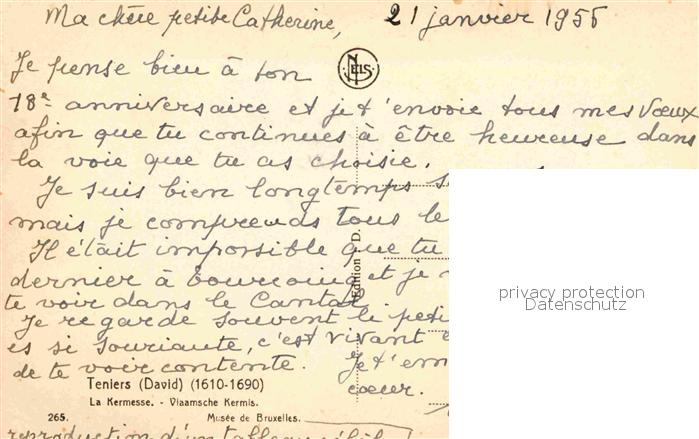 Ma chère petite Catherine, 21 janvier 1956
Je pense bien à ton
NELS
18e anniversaire et je t'envoie tous mes vœux
afin que tu continues à être heureuse dans
la voie que tu as choisie.
Je suis bien longtemps s
mais je comprends tous le
Il était impossible que tu
dernier à bourcoing et je
te voir dans le Cantal
Edition D.
Je regarde souvent le peti
es si souriante, c'est vivant e
de te voir contente. Je t'em
cœur.
Teniers (David) (1610-1690)
La Kermesse. - Vlaamsche Kermis.
265. Musée de Bruxelles.
reproduction d'un tableau célèb
privacy protection
Datenschutz